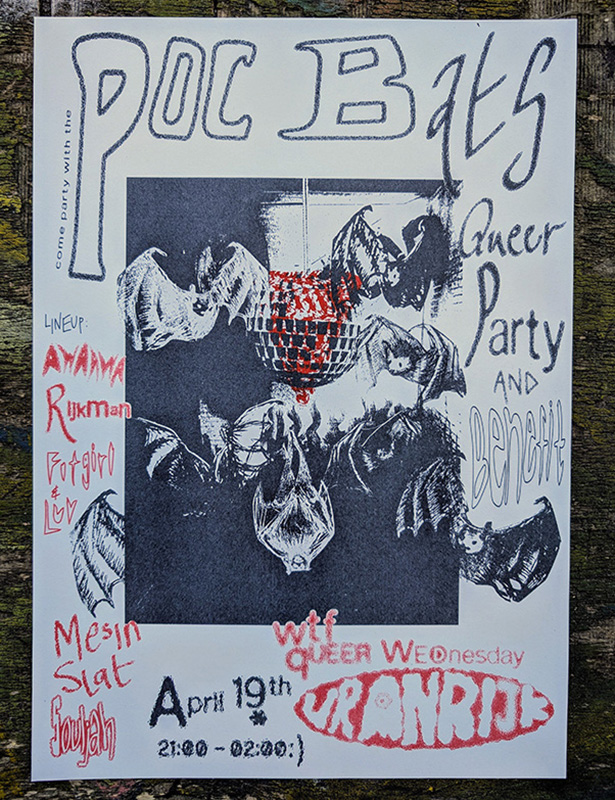 come party with the
POC Bats
Queer
Party
AND
Benefit
LINEUP:
AWAWA
Rijkman
Fotgirl
& Luv
Mesin
Slat
Soujah
wtf
QUEER WEDnesday
VRANRIJK
April 19th
*
21:00 – 02:00:)